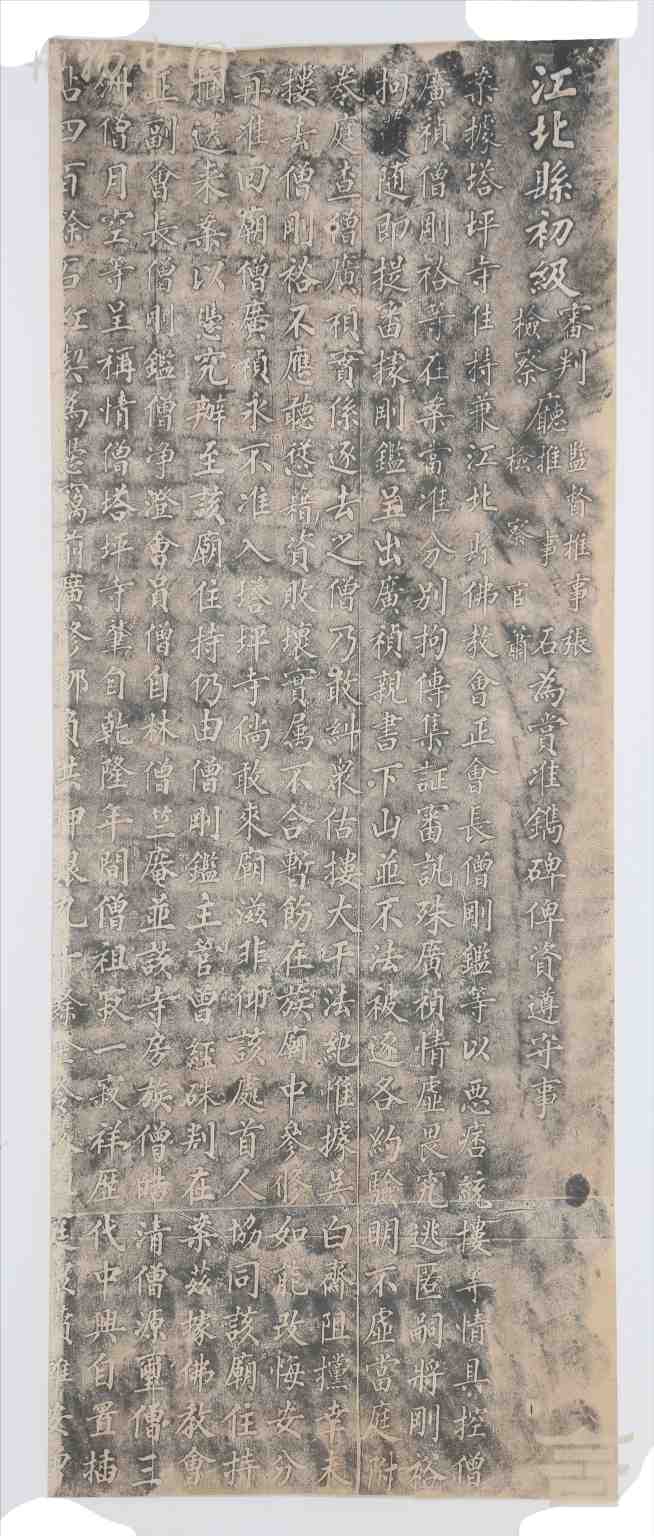 江北縣初級審判檢察廳監督推事張推事石檢察官蕭為賞准鐫碑俾資遵守事
案據塔坪寺住持兼江北縣佛教會正會長僧剛鑑等以惡痞統摟等情具控僧
廣禎僧剛裕等在案當准分別拘傳集証審訊殊廣禎情虛畏究逃匿嗣將剛裕
拘獲隨即提審據剛鑑呈出廣禎親書下山並不法被逐各約驗明不虛當庭附
卷庭查僧廣禎實係逐去之僧乃敢糾眾估摟大干法紀惟據吳白齋阻攩幸未
摟去僧剛裕不應聽慫藉資敗壞實属不合暫飭在族廟中參修如能改悔安分
再准回廟僧廣禎永不准入塔坪寺倘敢來廟滋非仰該處首人協同該廟住持
捆送來案以憑究辦至該廟住持仍由僧剛鑑主管曾經硃判在案茲據佛教會
正副會長僧剛鑑僧淨澄會員僧自林僧竺庵並該寺房族僧皓清僧源璽僧三
僧月空等呈稱情僧塔坪寺業自乾隆年間僧祖寂一寂祥歷代中興自置插
占四百餘石紅契為憑